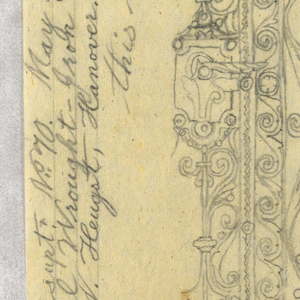 supt. No. 70. May
Wrought-Iron
Hengst, Hanover.
this